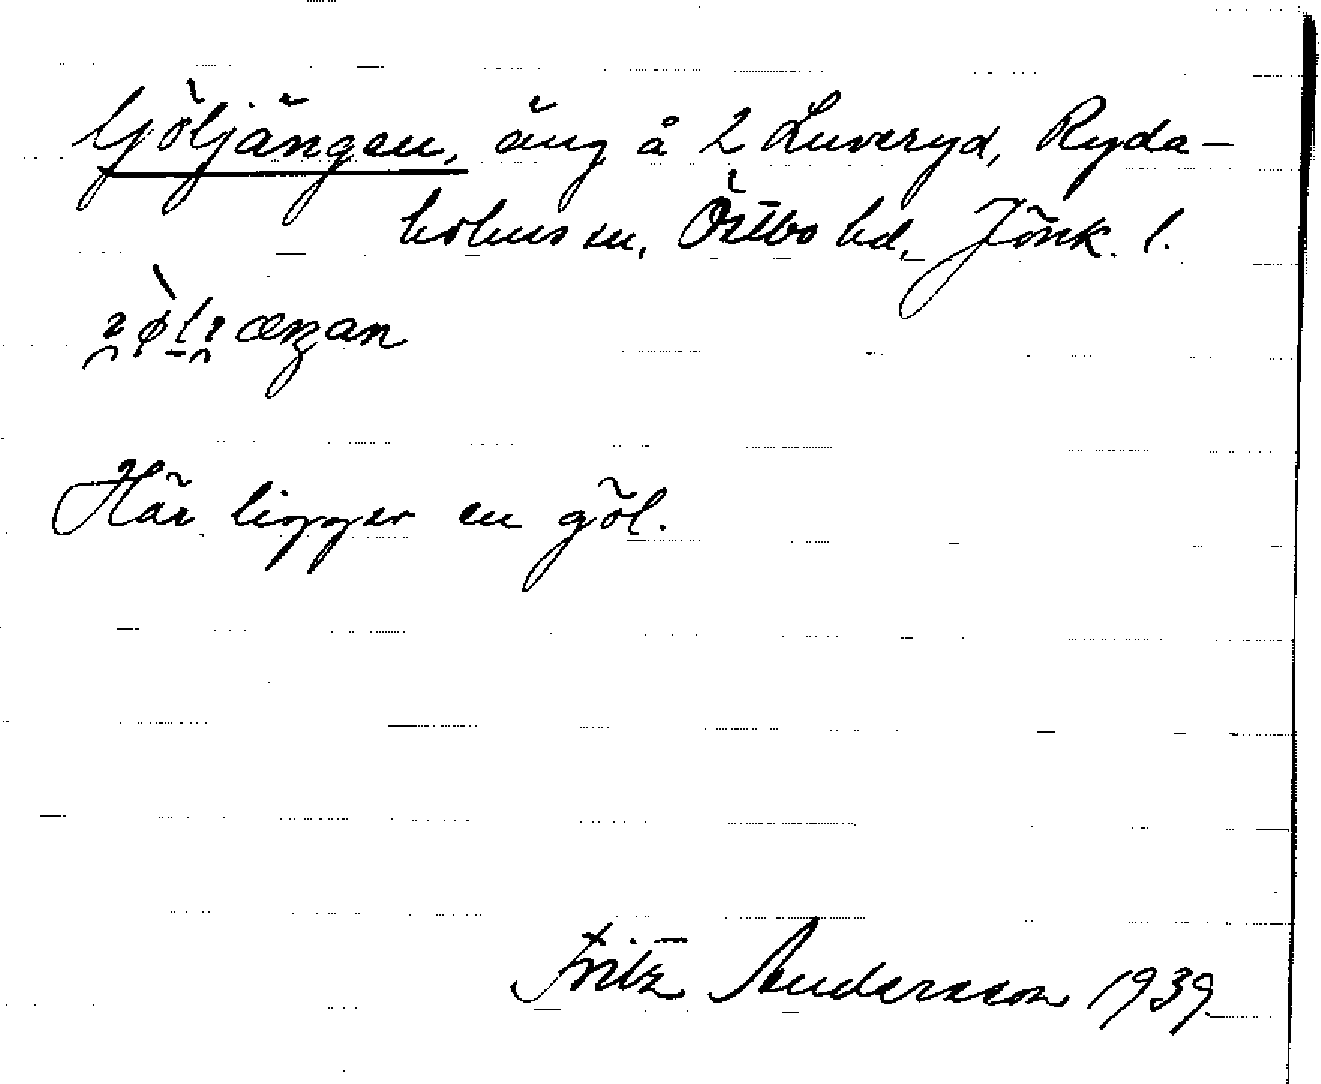 Göljängen, äng å 2 Luveryd, Ryda-
holms sn, Östbo hd, Jönk. l.
Här ligger en göl.
Fritz Andersson 1939